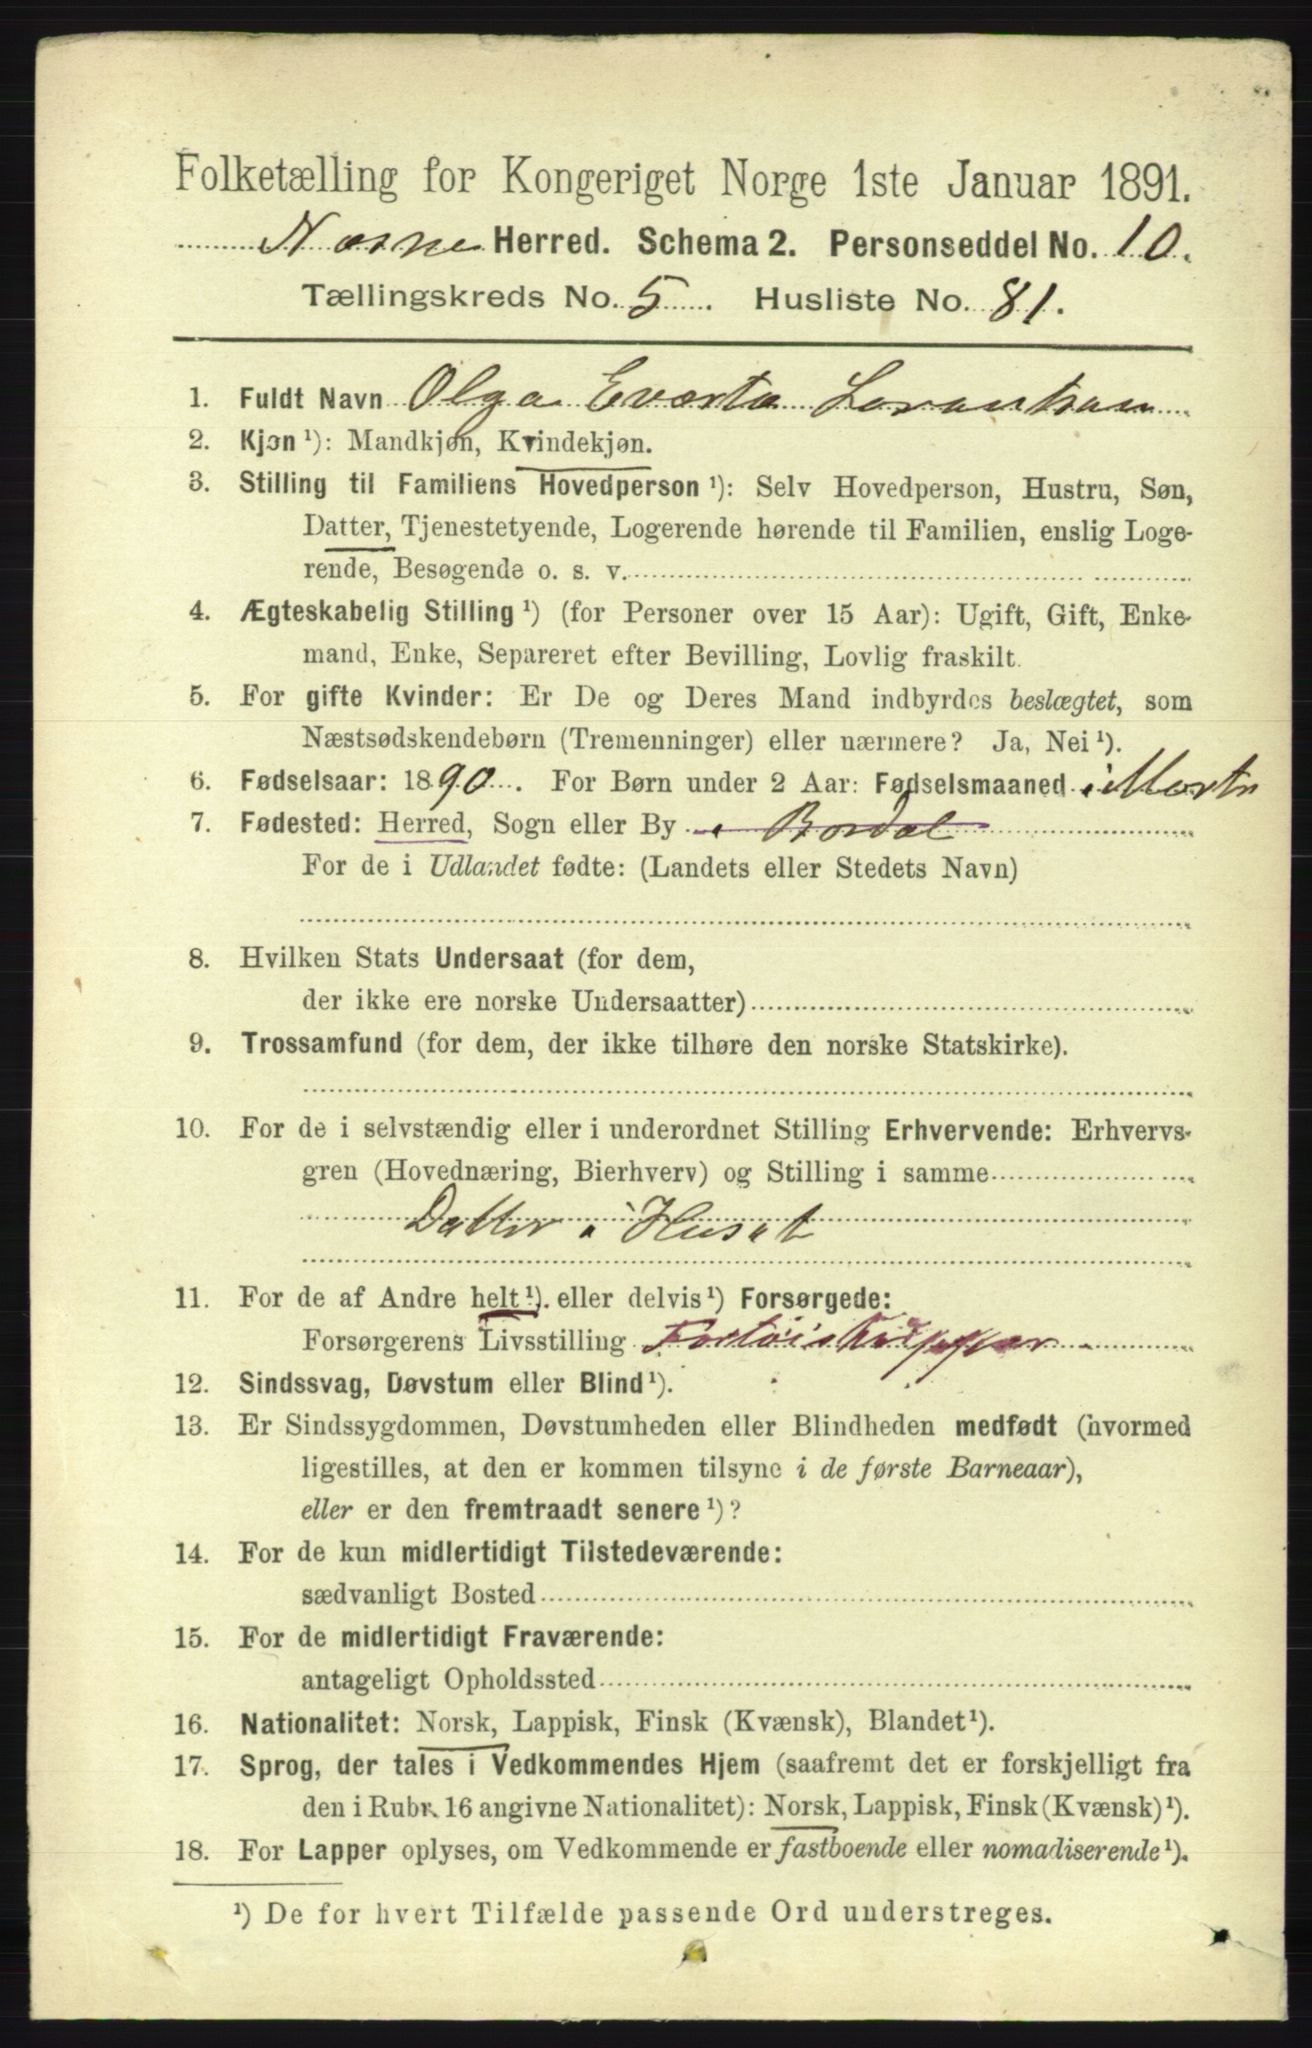 Folketælling for Kongeriget Norge 1ste Januar 1891.
Nesne Herred. Schema 2. Personseddel No. 10.
Tællingskreds No. 5. Husliste No. 81.
1. Fuldt Navn Olga Evarta
2. Kjøn ¹): Mandkjøn, Kvindekjøn.
3. Stilling til Familiens Hovedperson ¹): Selv Hovedperson, Hustru, Søn,
Datter, Tjenestetyende, Logerende hørende til Familien, enslig Loge-
rende, Besøgende o. s. v.
4. Ægteskabelig Stilling ¹) (for Personer over 15 Aar): Ugift, Gift, Enke-
mand, Enke, Separeret efter Bevilling, Lovlig fraskilt.
5. For gifte Kvinder: Er De og Deres Mand indbyrdes beslægtet, som
Næstsødskendebørn (Tremenninger) eller nærmere? Ja, Nei ¹).
6. Fødselsaar: 1890. For Børn under 2 Aar: Fødselsmaaned i Marts
7. Fødested: Herred, Sogn eller By
For de i Udlandet fødte: (Landets eller Stedets Navn)
8. Hvilken Stats Undersaat (for dem,
der ikke ere norske Undersaatter)
9. Trossamfund (for dem, der ikke tilhøre den norske Statskirke).
10. For de i selvstændig eller i underordnet Stilling Erhvervende: Erhvervs-
gren (Hovednæring, Bierhverv) og Stilling i samme
Datter i Huset
11. For de af Andre helt ¹). eller delvis ¹) Forsørgede:
Forsørgerens Livsstilling
12. Sindssvag, Døvstum eller Blind ¹).
13. Er Sindssygdommen, Døvstumheden eller Blindheden medfødt (hvormed
ligestilles, at den er kommen tilsyne i de første Barneaar),
eller er den fremtraadt senere ¹)?
14. For de kun midlertidigt Tilstedeværende:
sædvanligt Bosted
15. For de midlertidigt Fraværende:
antageligt Opholdssted
16. Nationalitet: Norsk, Lappisk, Finsk (Kvænsk), Blandet ¹).
17. Sprog, der tales i Vedkommendes Hjem (saafremt det er forskjelligt fra
den i Rubr. 16 angivne Nationalitet): Norsk, Lappisk, Finsk (Kvænsk) ¹).
18. For Lapper oplyses, om Vedkommende er fastboende eller nomadiserende ¹).
¹) De for hvert Tilfælde passende Ord understreges.